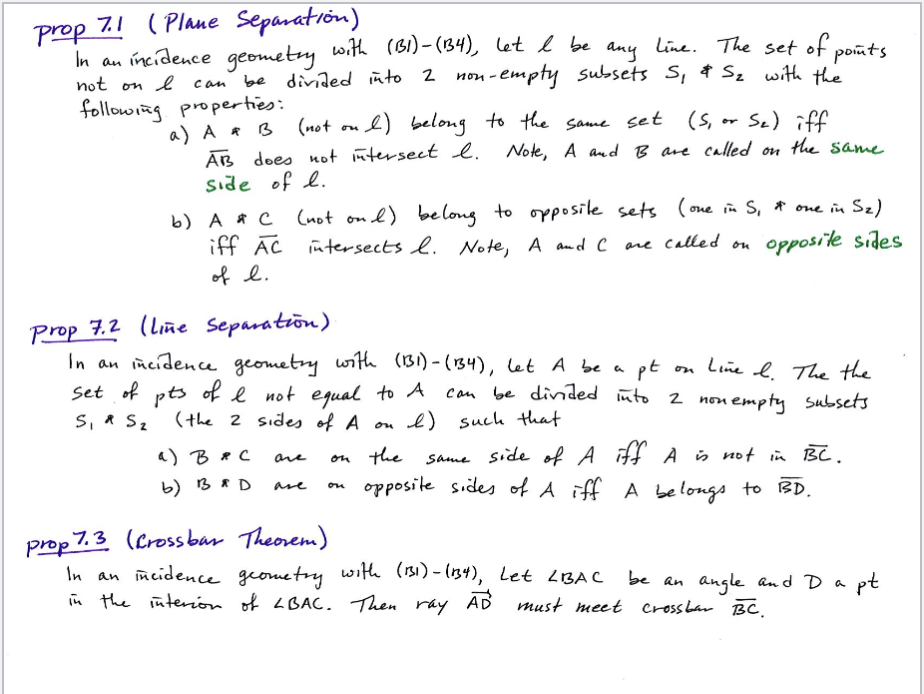 Prop 7.1 (Plane Separation)
In an incidence geometry with (B1)-(B4), let l be any line. The set of points
not on l can be divided into 2 non-empty subsets S₁ & S₂ with the
following properties:
a) A & B (not on l) belong to the same set (S₁ or S₂) iff
A̅B̅ does not intersect l. Note, A and B are called on the same
side of l.
b) A & C (not on l) belong to opposite sets (one in S₁ & one in S₂)
iff A̅C̅ intersects l. Note, A and C are called on opposite sides
of l.
Prop 7.2 (Line Separation)
In an incidence geometry with (B1)-(B4), let A be a pt on line l. The the
set of pts of l not equal to A can be divided into 2 nonempty subsets
S₁ & S₂ (the 2 sides of A on l) such that
a) B & C are on the same side of A iff A is not in B̅C̅.
b) B & D are on opposite sides of A iff A belongs to B̅D̅.
Prop 7.3 (Crossbar Theorem)
In an incidence geometry with (B1)-(B4), Let ∠BAC be an angle and D a pt
in the interior of ∠BAC. Then ray AD⃗ must meet crossbar B̅C̅.